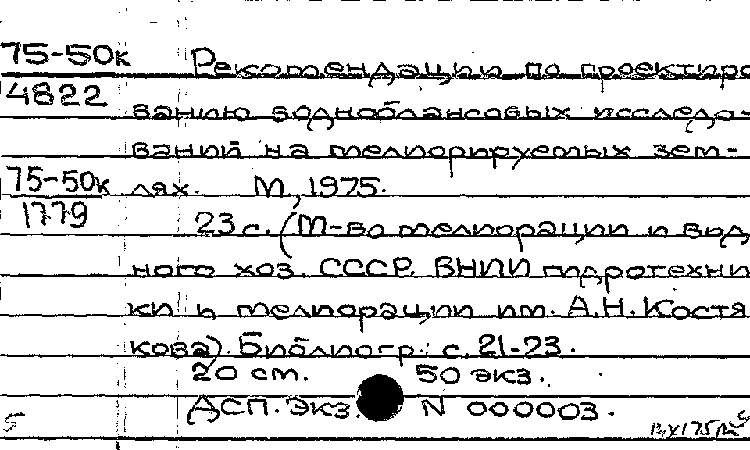 75-50к Рекомендации по проектиро
4822 ванию воднобалансовых исследо-
ваний на мелиорируемых зем-
75-50к лях. М., 1975.
1779 23 с. (М-во мелиорации и вод
ного хоз. СССР. ВНИИ гидротехни
ки и мелиорации им. А.Н. Костя
кова). Библиогр.: с. 21-23.
20 см. 50 экз.
ДСП. Экз. N 000003.